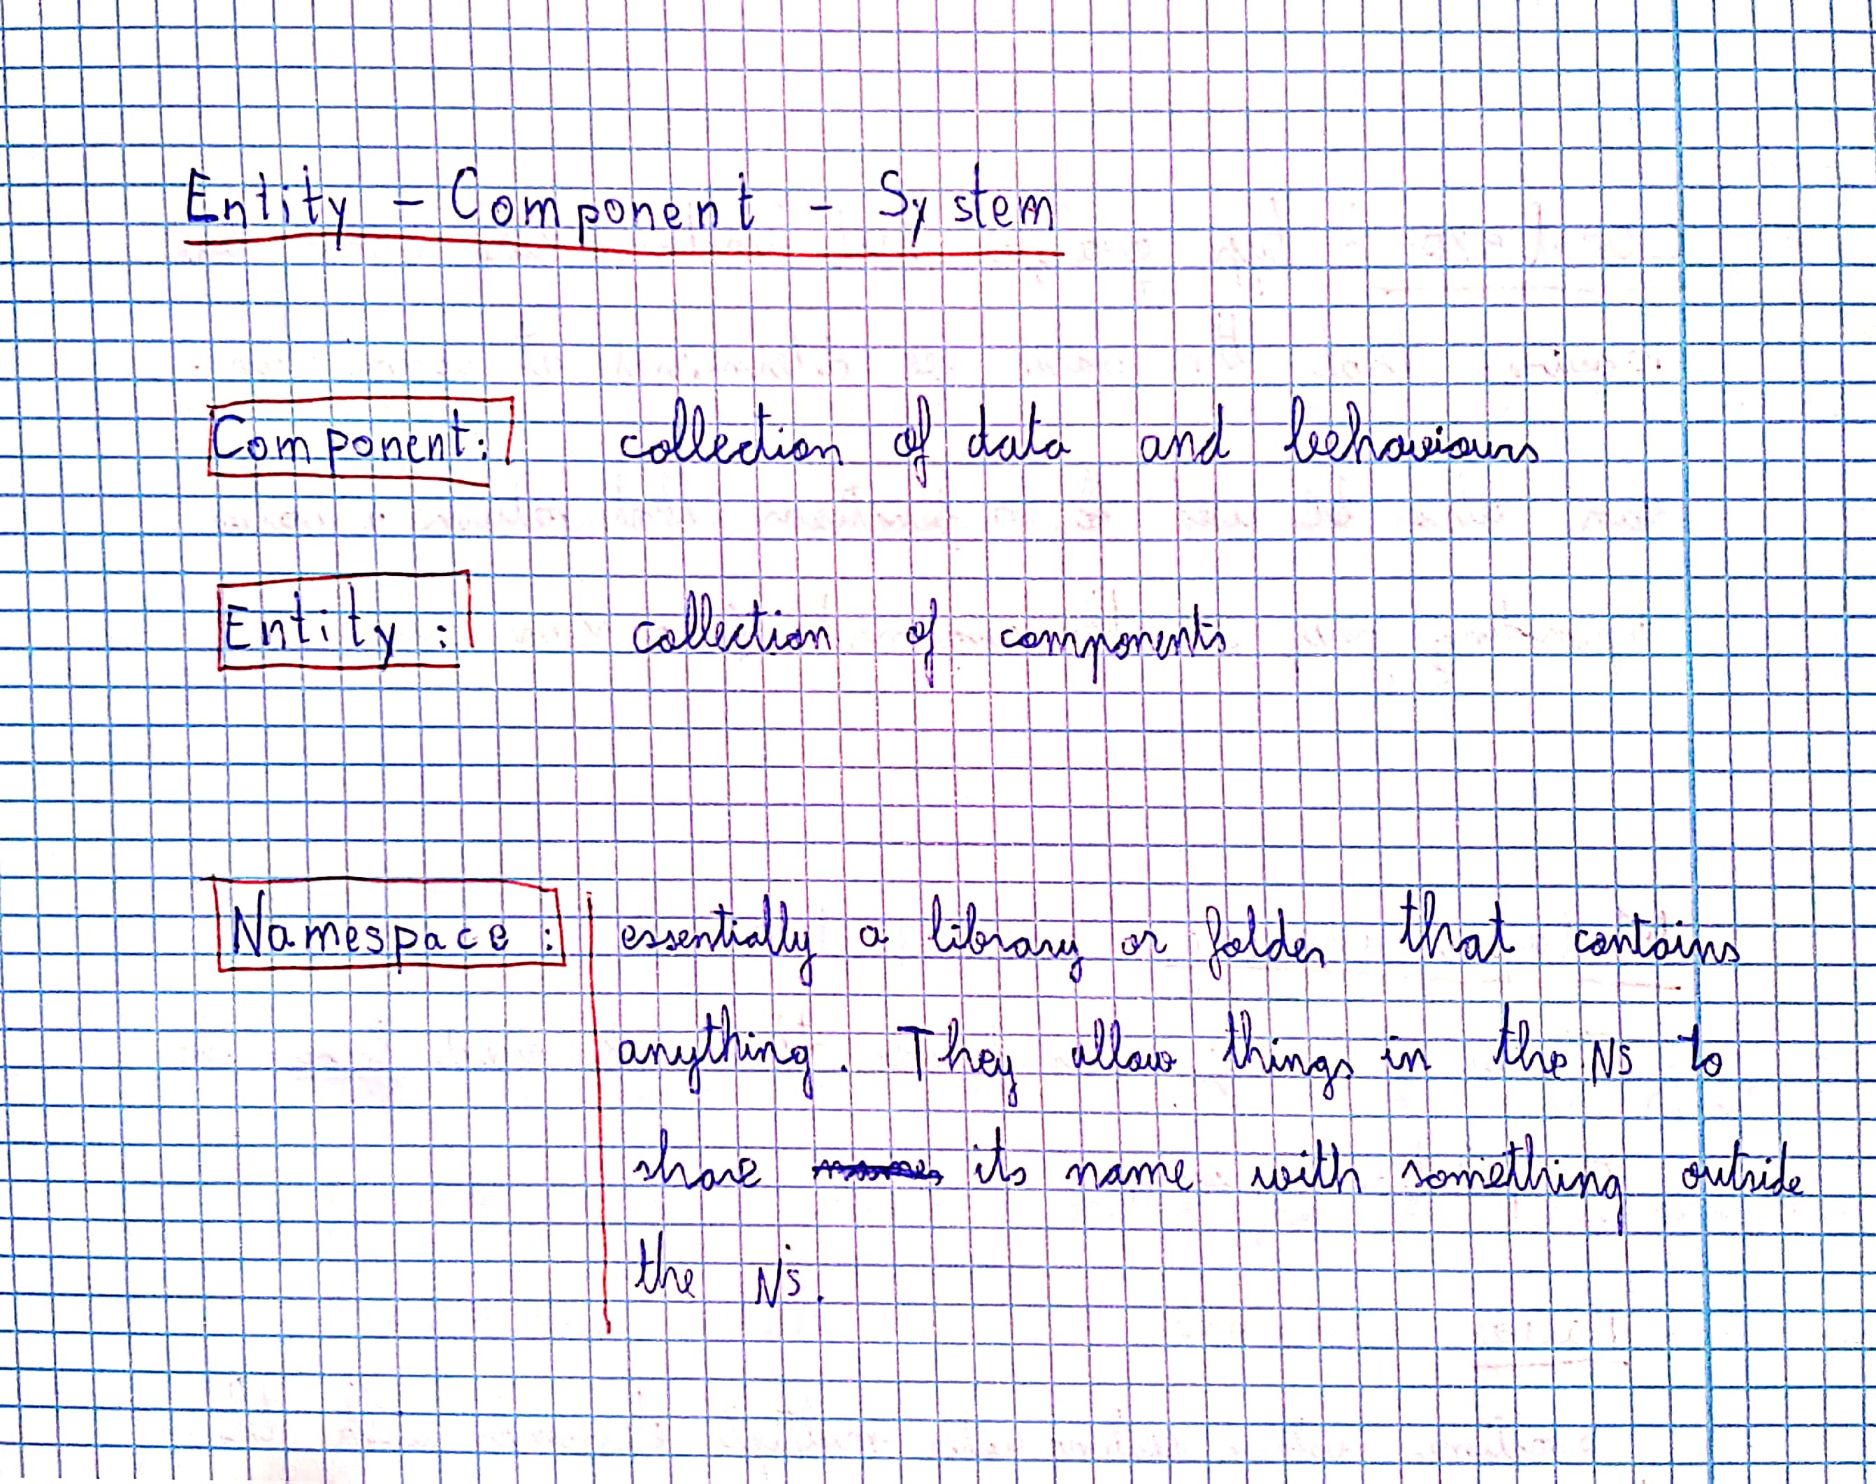 Entity - Component - System
Component: collection of data and behaviours
Entity : collection of components
Namespace : essentially a library or folder that contains
anything. They allow things in the NS to
share its name with something outside
the NS.